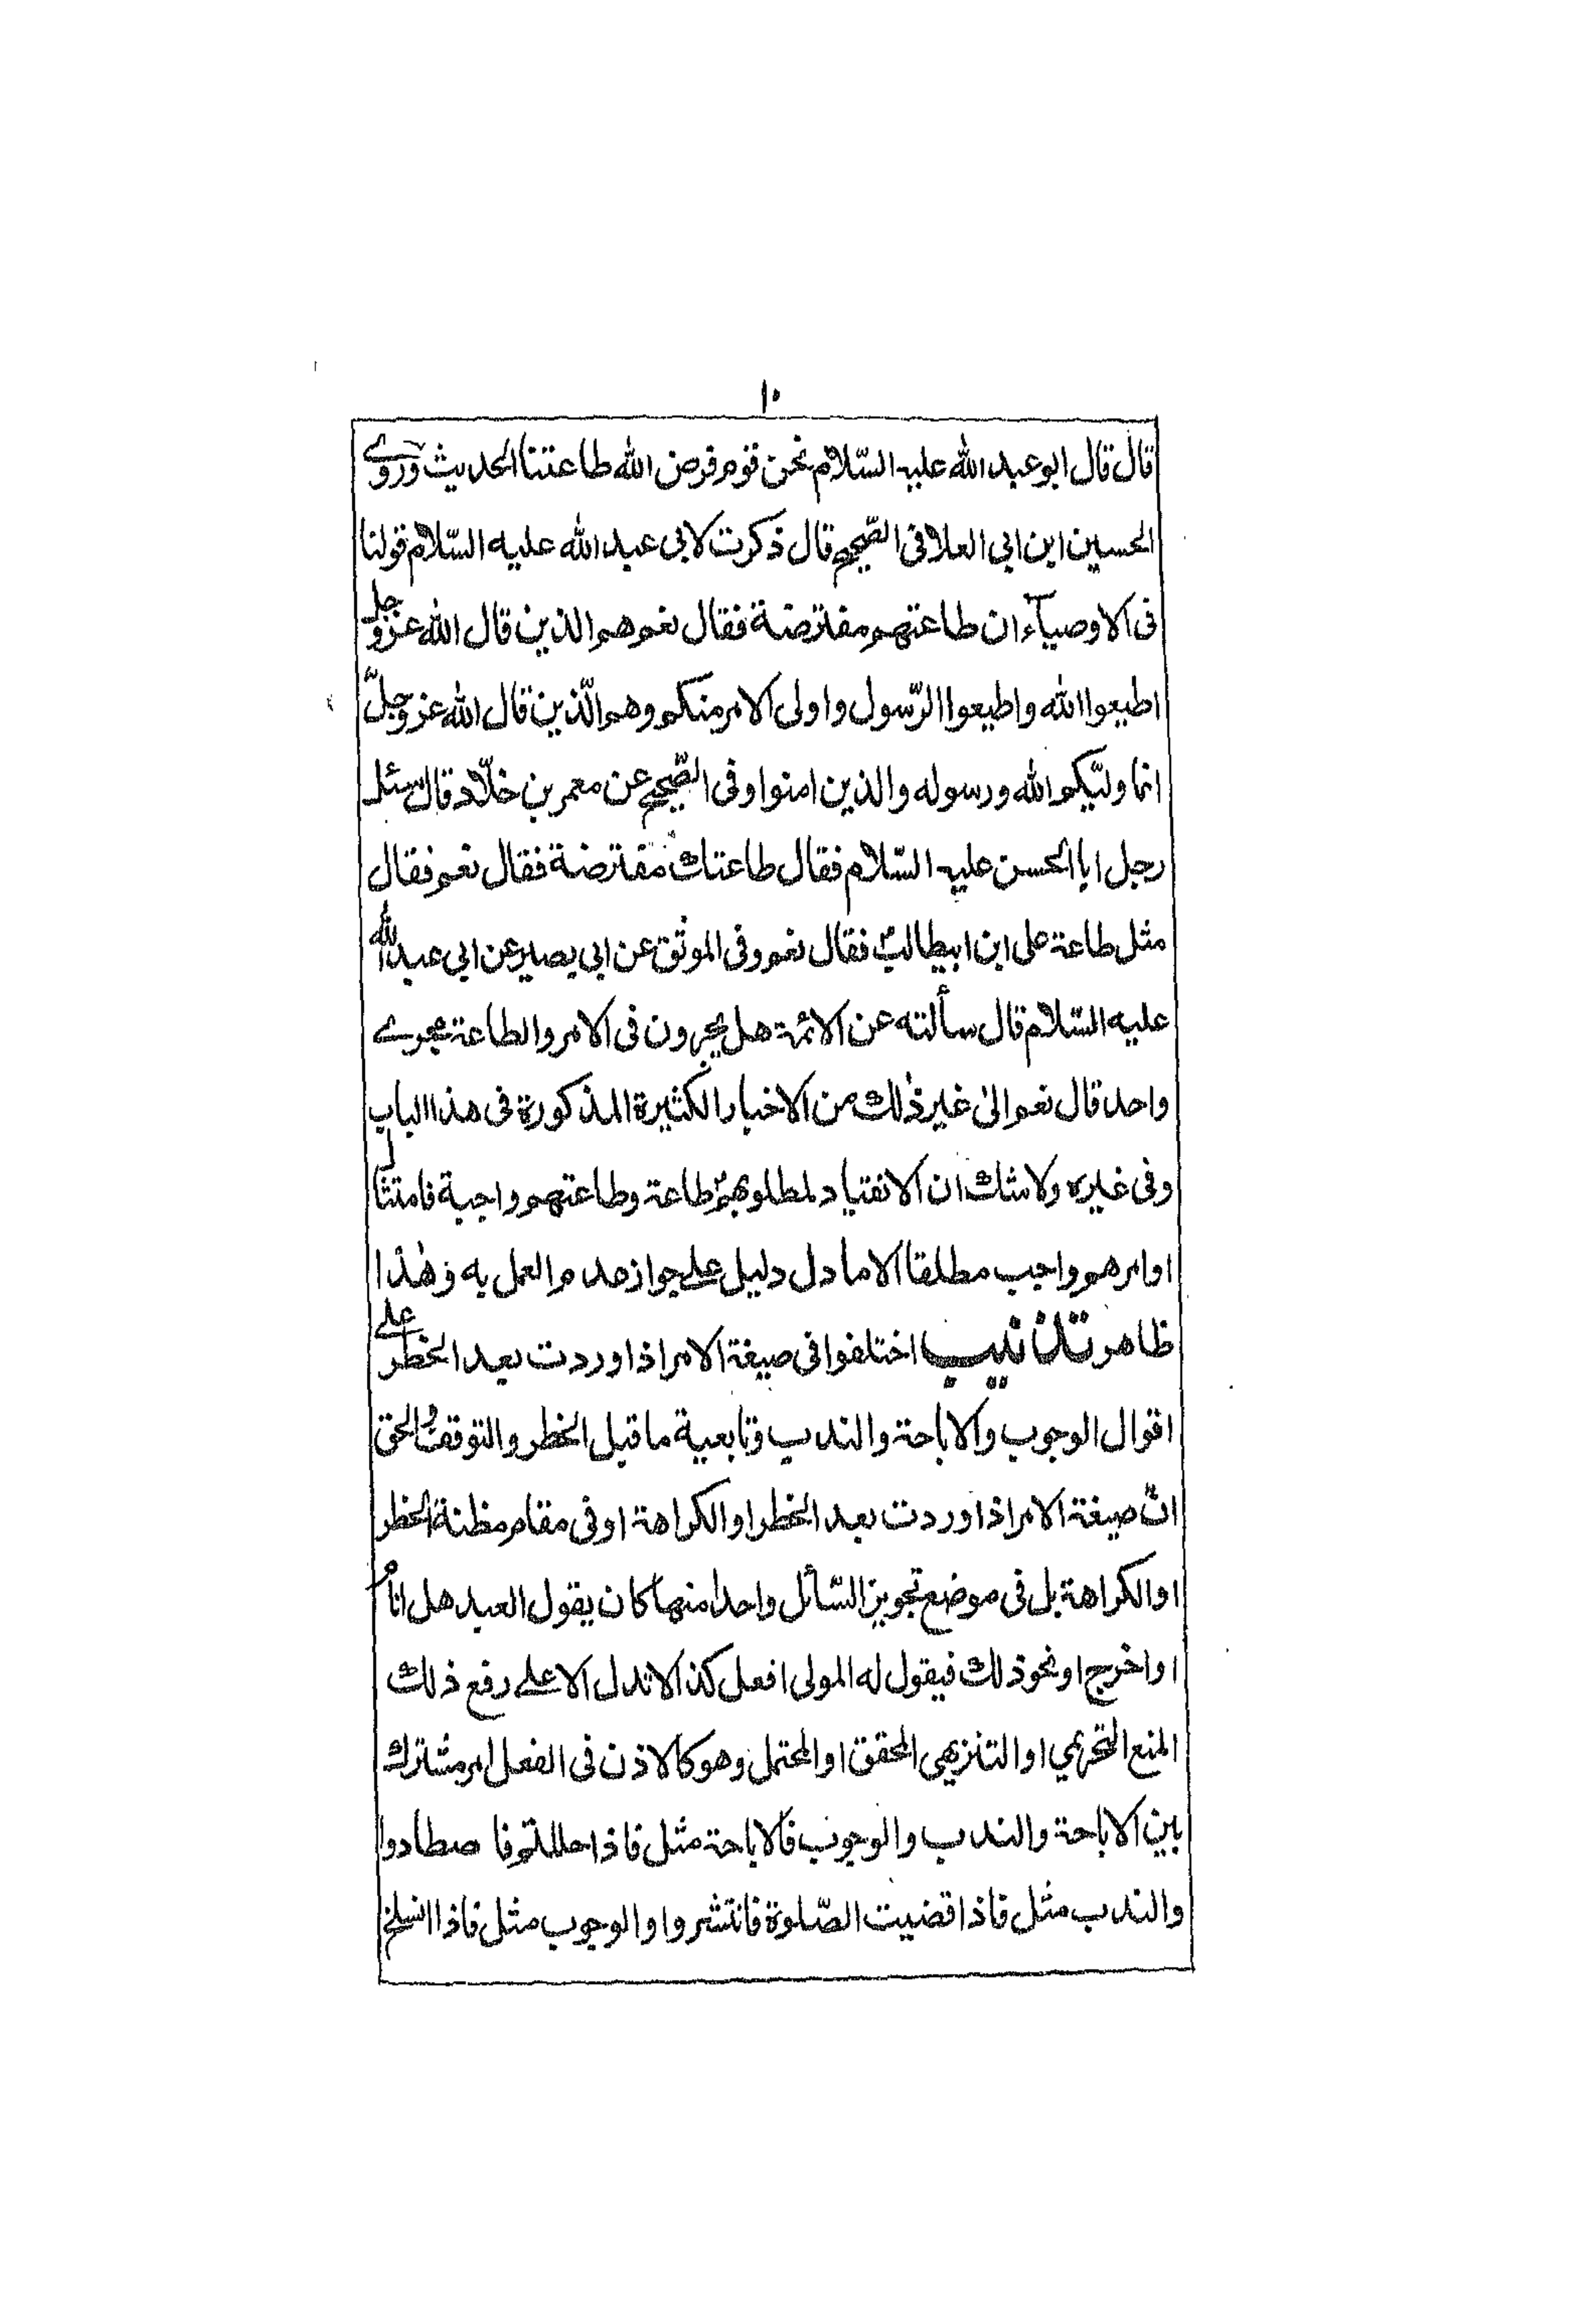 ١٠
قال قال ابو عبد الله عليه السّلام نحن قوم فرض الله طاعتنا الحديث وروى
الحسين ابن ابى العلا فى الصّحيح قال ذكرت لابى عبد الله عليه السّلام قولنا
فى الاوصيآء ان طاعتهم مفترضة فقال نعم هم الذين قال الله عز و جل
اطيعوا الله واطيعوا الرّسول واولى الامر منكم وهم الّذين قال الله عز وجلّ
انما وليّكم الله ورسوله والذين امنوا وفى الصّحيح عن معمر بن خلّاد قال سئل
رجل ابا الحسن عليه السّلام فقال طاعتك مفترضة فقال نعم فقال
مثل طاعة على ابن ابيطالب فقال نعم وفى الموثق عن ابى بصير عن ابى عبد الله
عليه السّلام قال سألته عن الائمّة هل يجرون فى الامر والطاعة مجرى
واحد قال نعم الى غير ذلك من الاخبار الكثيرة المذكورة فى هذا الباب
وفى غيره ولا شك ان الانقياد لمطلوبهم طاعة وطاعتهم واجبة فامتثال
اوامرهم واجب مطلقا الا ما دل دليل على جواز عدم العمل به وهذا
ظاهر تذنيب اختلفوا فى صيغة الامر اذا وردت بعد الخطر على
اقوال الوجوب والاباحة والندب وتابعية ما قبل الخطر والتوقف والحق
انّ صيغة الامر اذا وردت بعد الخطر او الكراهة او فى مقام مظنة الخطر
او الكراهة بل فى موضع تجويز السّائل واحدا منها كان يقول العبد هل انام
او اخرج او نحو ذلك فيقول له المولى افعل كذا لا تدل الا على رفع ذلك
المنع التحريمي او التنزيهى المحقق او المحتمل وهو كالاذن فى الفعل امر مشترك
بين الاباحة والندب والوجوب فالاباحة مثل فاذا حللتم فاصطادوا
والندب مثل فاذا قضيت الصّلوة فانتشروا والوجوب مثل فاذا انسلخ